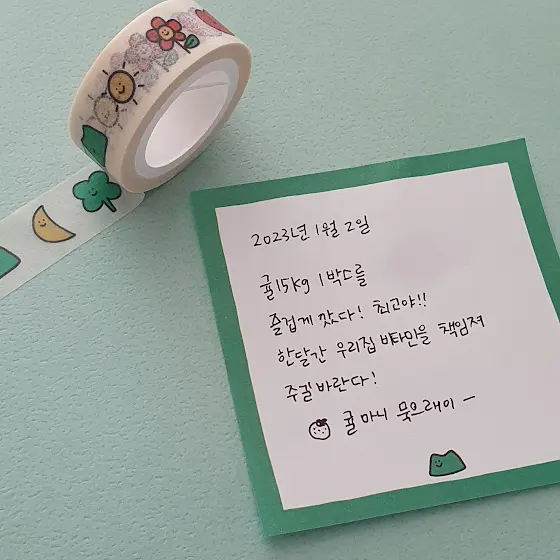 2023년 1월 2일
귤15kg 1박스를
즐겁게 깠다! 최고야!!
한달간 우리집 비타민을 책임져
주길 바란다!
귤 마니 묵으래이 -